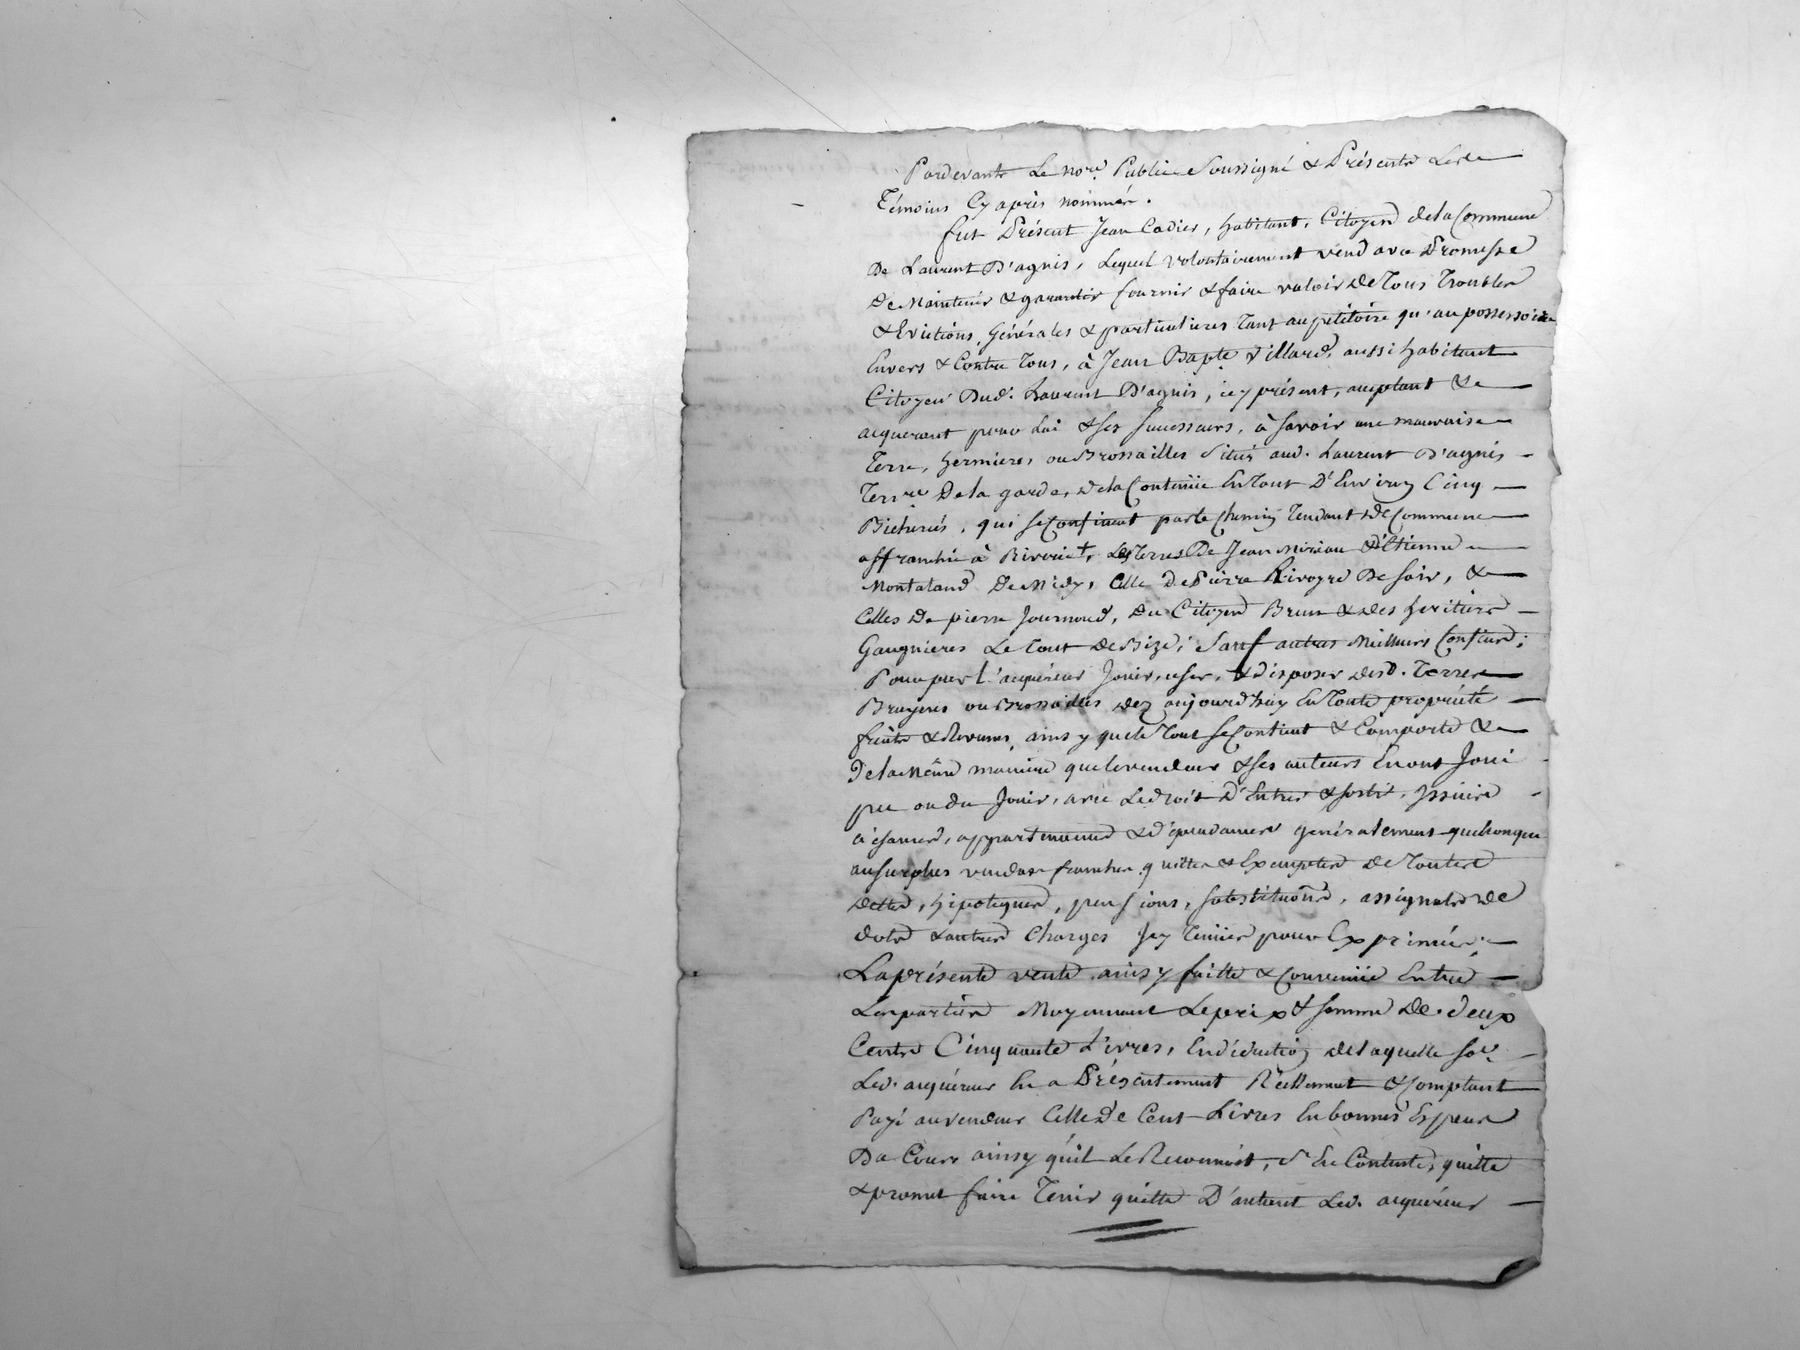 Pardevant Le nore. Public Soussigné & Présents Les
Témoins Cy après nommés.
fut Présent Jean Cadier, habitant, Citoyen dela Commune
De Laurent D'agnis, Lequel volontairement vend avec Promesse
De Maintenir & garantir fournir & faire valoir de Tous Troubles
& Evictions, Générales & particulieres Tant au petitoire qu'au possessoire
Envers & Contre Tous, à Jean Bapte. Villard, aussi habitant
Citoyen Dud. Laurent D'agnis, icy présent, acceptant &
acquerant pour Lui & ses successeurs, à savoir une mauvaise
Terre, hermieres, ou Brossailles Situé aud. Laurent D'agnis
De la garde, dela Contenüe En Tout D'Environ Cinq
Bicherés, qui se Confinent par le Chemin Tendant de Commune
affranchie à Riverie, Les Terres De Jean & d'Etienne
Montaland De Midy, Celle De Pierre Rivoyre De soir, &
Celles De pierre Journoud, Du Citoyen Brun & des heritiers
Gaugnieres Le Tout De Bize, Sauf autres Meilleurs Confins;
Pour par l'acquéreur Jouir, user, & disposer desd. Terres
Bruyeres ou Brossailles dez aujourd'huy En Toute propriété
fruits & Revenus, ainsy que le Tout se Contient & Comporte &
De la Même maniere que le vendeur & ses auteurs En ont Joui
pu ou du Jouir, avec Le droit D'Entrer & sortir,
aisances, appartenances & dépendances generalement quelconques
au surplus vendues franches quittes & Exemptes de Toutes
dettes, hipoteques, pensions, substitutions, assignats de
dots & autres Charges Icy Tenües pour Exprimées.
La présente vente ainsy faitte & Convenüe Entre
Les parties Moyennant Le prix & somme De deux
Cents Cinquante Livres, En déduction de laquelle soe.
Led. acquéreur En a Présentement Réellement & Comptant
Payé au vendeur Celle De Cent Livres En bonnes Especes
Du Cours ainsy qu'il Le Reconnoit, s'En Contente, quitte
& promet faire Tenir quitte D'autant Led. acquéreur